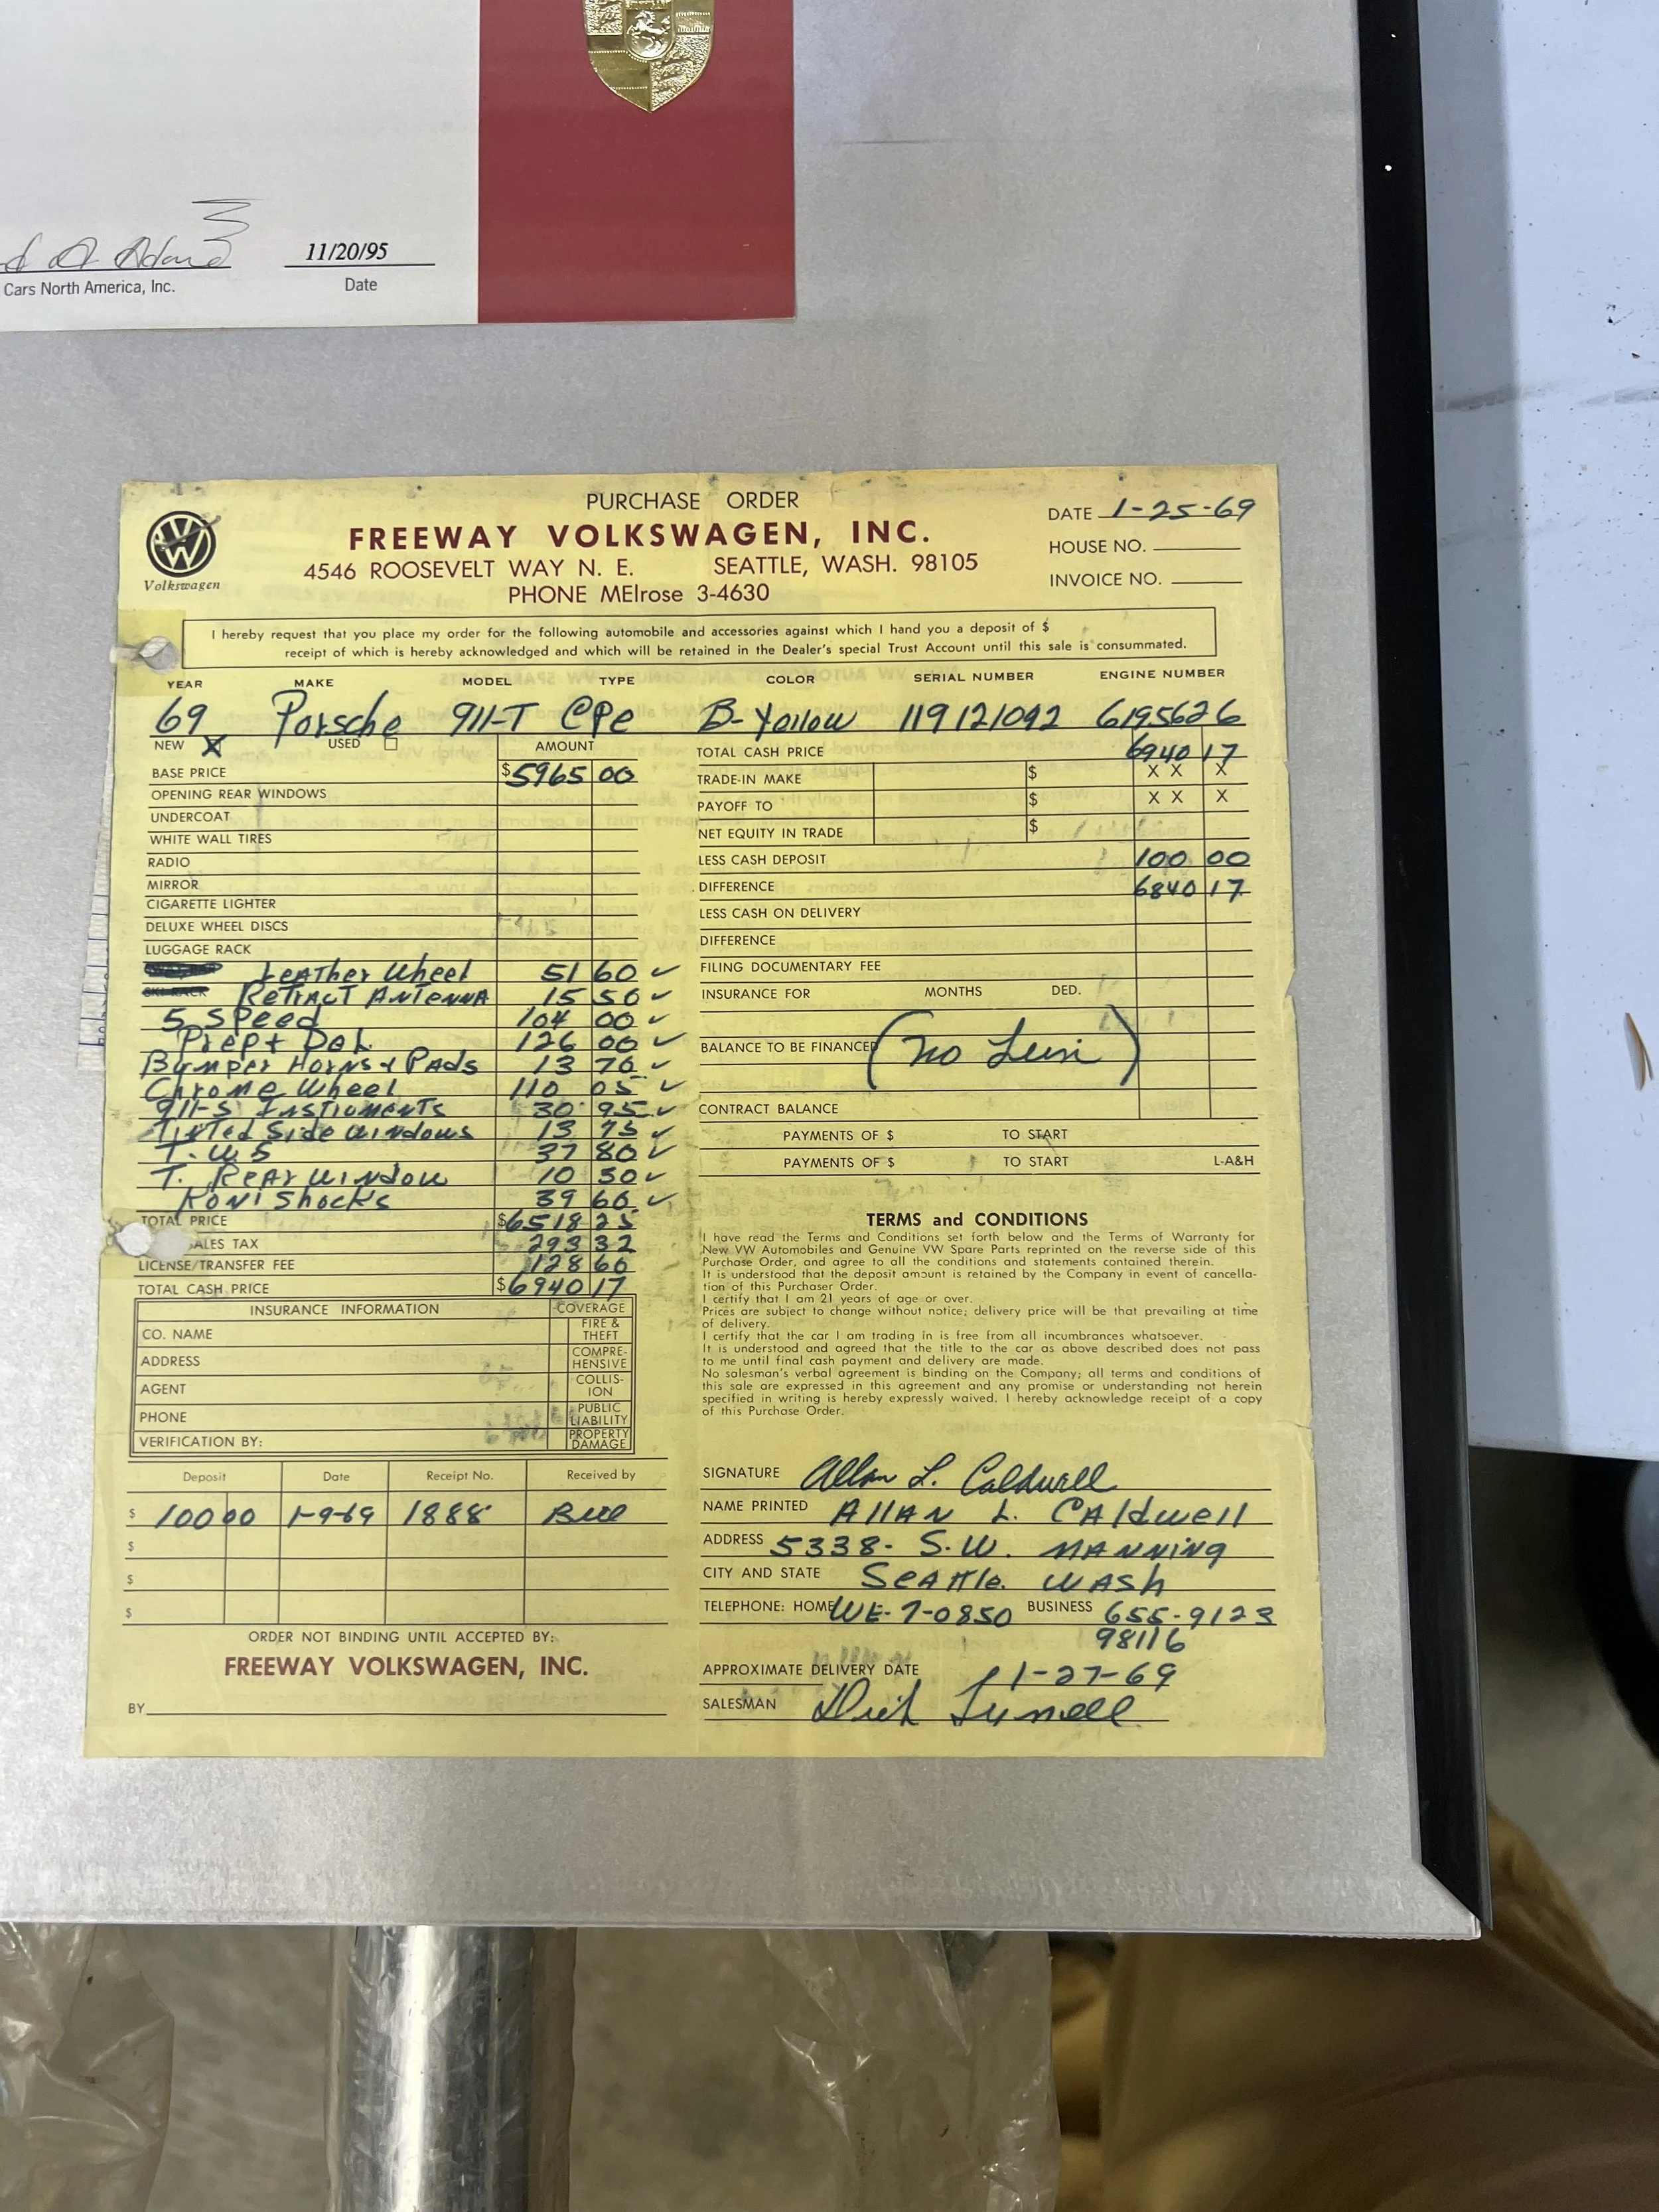 11/20/95
Cars North America, Inc.
Date
PURCHASE ORDER
FREEWAY VOLKSWAGEN, INC.
4546 ROOSEVELT WAY N. E. SEATTLE, WASH. 98105
PHONE MElrose 3-4630
Volkswagen
DATE 1-25-69
HOUSE NO.
INVOICE NO.
I hereby request that you place my order for the following automobile and accessories against which I hand you a deposit of $
receipt of which is hereby acknowledged and which will be retained in the Dealer's special Trust Account until this sale is consummated.
YEAR MAKE MODEL TYPE COLOR SERIAL NUMBER ENGINE NUMBER
69 Porsche 911-T CPe B-Yellow 119121092 6195626
NEW X USED AMOUNT
BASE PRICE $5965 00
OPENING REAR WINDOWS
UNDERCOAT
WHITE WALL TIRES
RADIO
MIRROR
CIGARETTE LIGHTER
DELUXE WHEEL DISCS
LUGGAGE RACK
Leather Wheel 51 60 ✓
SKI RACK Retract Antenna 15 50 ✓
5 Speed 104 00 ✓
Prep + Del. 126 00 ✓
Bumper Horns + Pads 13 70 ✓
Chrome Wheel 110 05 ✓
911-S Instruments 30 95 ✓
Tinted Side Windows 13 75 ✓
T. W S 37 80 ✓
T. Rear Window 10 50 ✓
Koni Shocks 39 60 ✓
TOTAL PRICE $6518 25
SALES TAX 293 32
LICENSE/TRANSFER FEE 128 60
TOTAL CASH PRICE $6940 17
TOTAL CASH PRICE 6940 17
TRADE-IN MAKE $ X X X
PAYOFF TO $ X X X
NET EQUITY IN TRADE $
LESS CASH DEPOSIT 100 00
DIFFERENCE 6840 17
LESS CASH ON DELIVERY
DIFFERENCE
FILING DOCUMENTARY FEE
INSURANCE FOR MONTHS DED.
BALANCE TO BE FINANCED (No )
CONTRACT BALANCE
PAYMENTS OF $ TO START
PAYMENTS OF $ TO START L-A&H
INSURANCE INFORMATION COVERAGE
CO. NAME FIRE & THEFT
ADDRESS COMPRE-HENSIVE
AGENT COLLIS-ION
PHONE PUBLIC LIABILITY
VERIFICATION BY: PROPERTY DAMAGE
Deposit Date Receipt No. Received by
$ 100 00 1-9-69 1888 Bill
$
$
$
ORDER NOT BINDING UNTIL ACCEPTED BY:
FREEWAY VOLKSWAGEN, INC.
BY
TERMS and CONDITIONS
I have read the Terms and Conditions set forth below and the Terms of Warranty for
New VW Automobiles and Genuine VW Spare Parts reprinted on the reverse side of this
Purchase Order, and agree to all the conditions and statements contained therein.
It is understood that the deposit amount is retained by the Company in event of cancella-
tion of this Purchaser Order.
I certify that I am 21 years of age or over.
Prices are subject to change without notice; delivery price will be that prevailing at time
of delivery.
I certify that the car I am trading in is free from all incumbrances whatsoever.
It is understood and agreed that the title to the car as above described does not pass
to me until final cash payment and delivery are made.
No salesman's verbal agreement is binding on the Company; all terms and conditions of
this sale are expressed in this agreement and any promise or understanding not herein
specified in writing is hereby expressly waived. I hereby acknowledge receipt of a copy
of this Purchase Order.
SIGNATURE Allan L. Caldwell
NAME PRINTED Allan L. Caldwell
ADDRESS 5338- S.W. Manning
CITY AND STATE Seattle. Wash
TELEPHONE: HOME WE-7-0850 BUSINESS 655-9123
98116
APPROXIMATE DELIVERY DATE 1-27-69
SALESMAN Dick